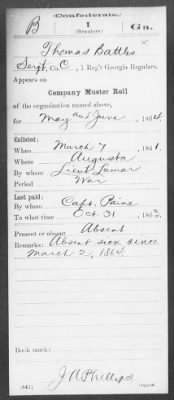 Confederate.
B 1 Ga.
(Regulars.)
Thomas Battles
Sergt, Co. C, 1 Reg't Georgia Regulars.
Appears on
Company Muster Roll
of the organization named above,
for May and June, 1864.
Enlisted:
When March 7, 1861.
Where Augusta
By whom Lieut Lamar
Period War
Last paid:
By whom Capt. Paine
To what time Oct. 31, 1863.
Present or absent Absent
Remarks: Absent sick since
March 2, 1864.
Book mark:
(642)
Copyist.